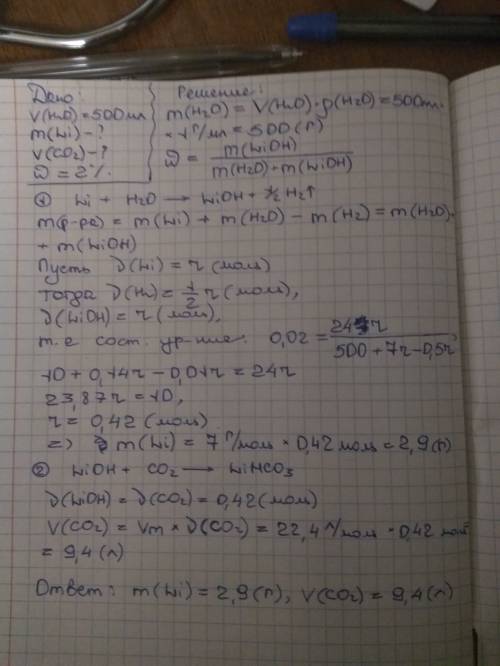 Дано:
V(H₂O)=500мл
m(Li)-?
V(CO₂)-?
ω=2%.
Решение:
m(H₂O) = V(H₂O)·ρ(H₂O)=500мл·
×1г/мл = 500 (г)
ω = m(LiOH) / m(H₂O)+m(LiOH)
① Li + H₂O → LiOH + ½ H₂↑
m(р-ра) = m(Li) + m(H₂O) - m(H₂) = m(H₂O)+
+ m(LiOH)
Пусть ν(Li) = x (моль)
тогда ν(H₂) = ½ x (моль),
ν(LiOH) = x (моль),
т.е сост. ур-ние: 0,02 = 24x / 500+7x-0,5x,
10 + 0,14x - 0,01x = 24x
23,87x = 10,
x = 0,42 (моль)
=> m(Li) = 7 г/моль × 0,42 моль = 2,9(г)
② LiOH + CO₂ → LiHCO₃
ν(LiOH) = ν(CO₂) = 0,42(моль)
V(CO₂) = Vm × ν(CO₂) = 22,4 л/моль · 0,42 моль
= 9,4 (л)
Ответ: m(Li) = 2,9(г), V(CO₂) = 9,4(л)